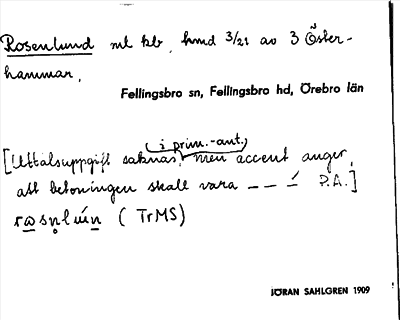 Rosenlund ml kb, hmd 3/21 av 3 Öster-
hammar,
Fellingsbro sn, Fellingsbro hd, Örebro län
i prim.-ant.
[Uttalsuppgift saknas, men accent anger,
att betoningen skall vara – – –́ P.A.]
(TrMS)
JÖRAN SAHLGREN 1909